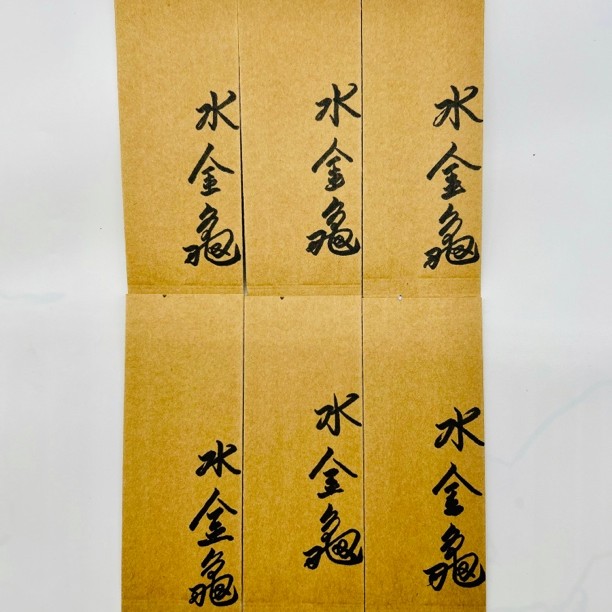 水金龜
水金龜
水金龜
水金龜
水金龜
水金龜